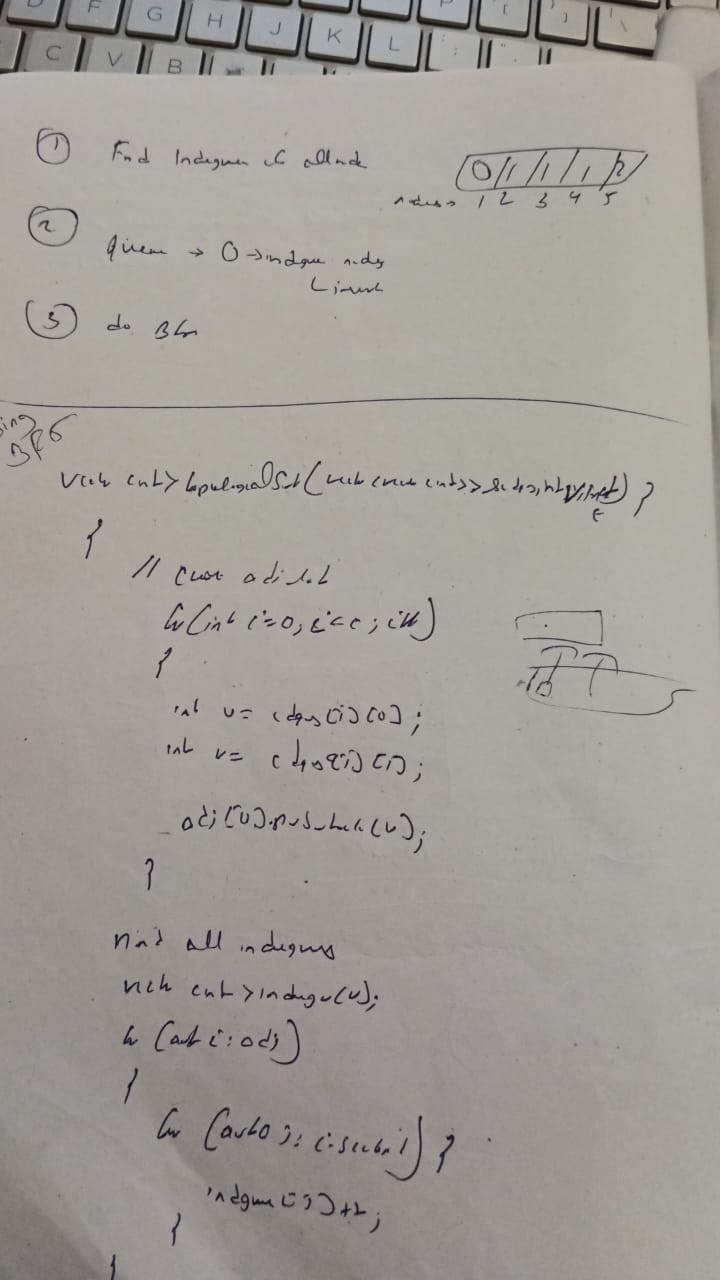 D F G H J K L
C V B
① Find Indegree of all node
0 1 1 1 2
nodes → 1 2 3 4 5
②
queue → 0 → indegree nodes
insert
③ do BFS
using
BFS
vector <int> topologicalSort(vector<vector<int>> &edges, int v, int e) {
{
// create adj list
for(int i=0; i<e; i++)
{
int u = edges[i][0];
int v = edges[i][1];
adj[u].push_back(v);
}
find all indegrees
vector <int> indegree(v);
for (auto i: adj)
{
for (auto j: i.second) {
indegree[j]++;
}
}